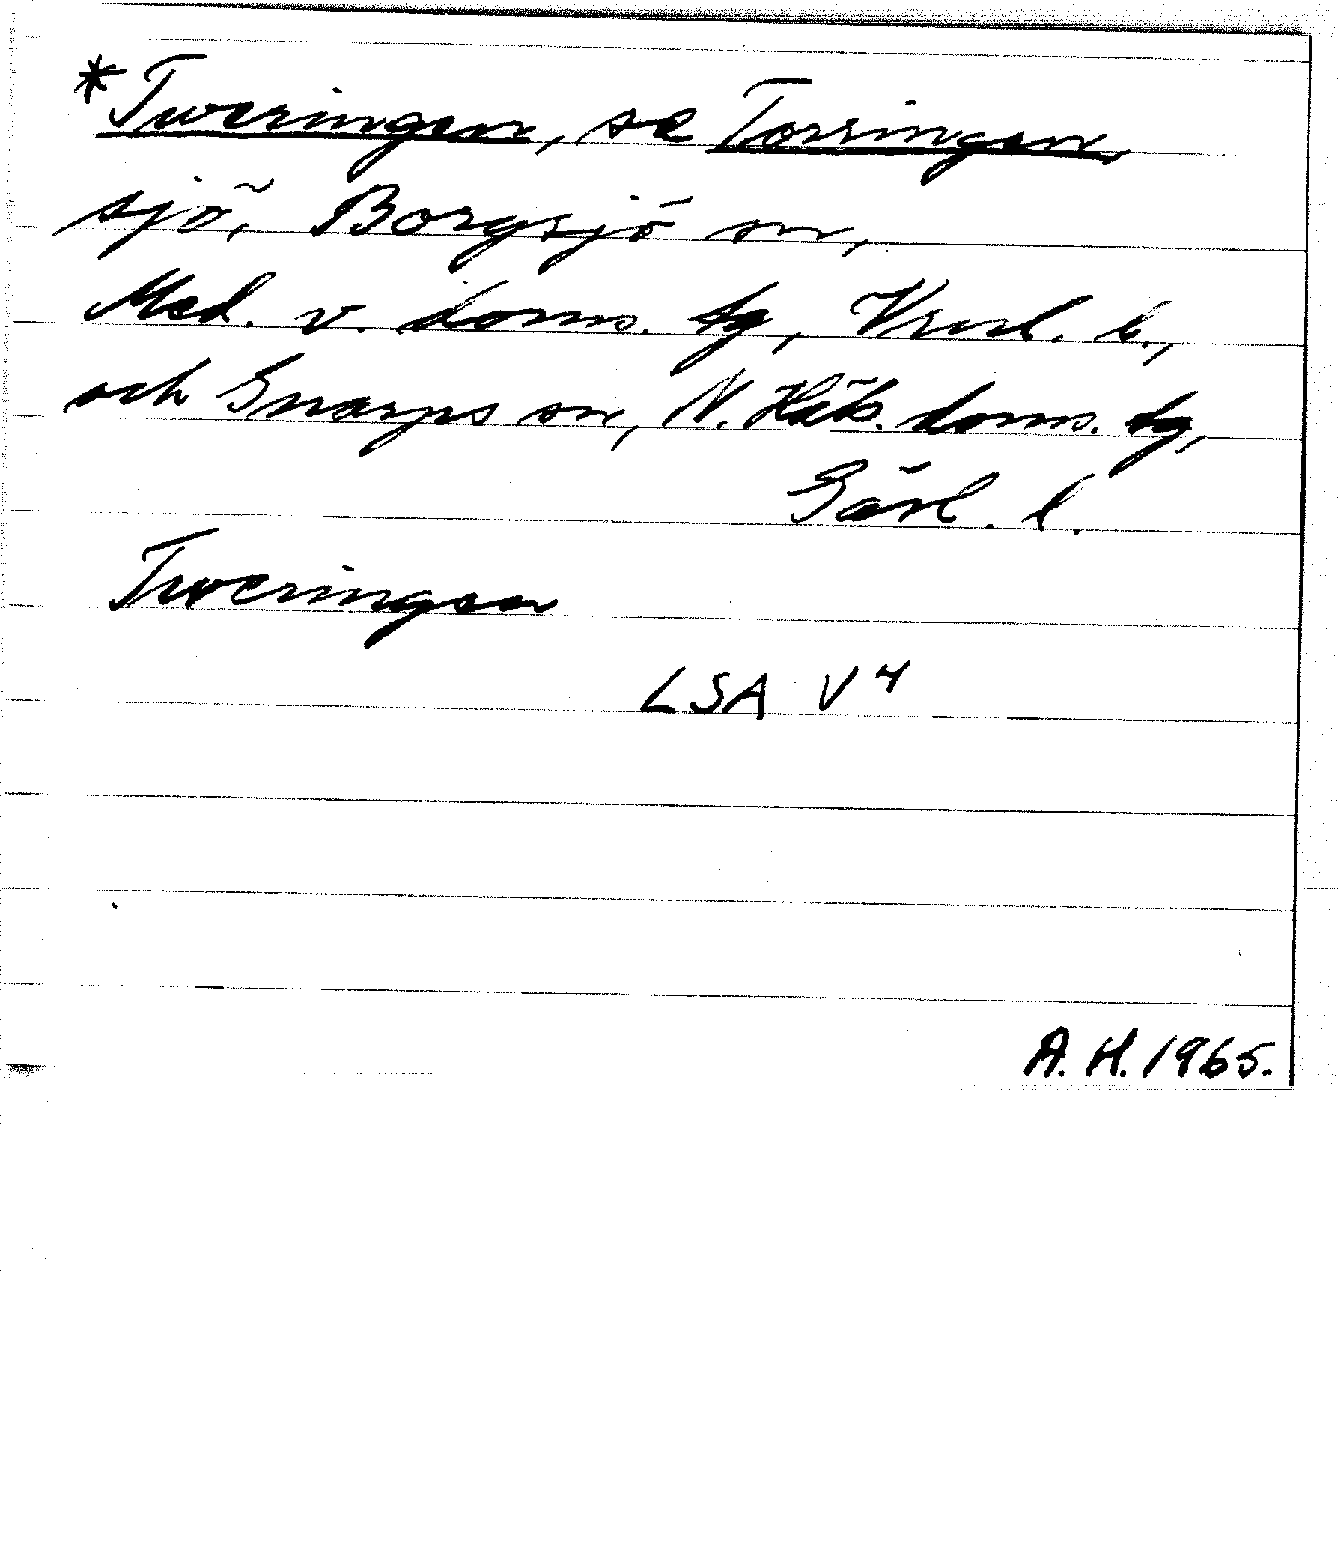 *Tweringen, se Torringen,
sjö, Borgsjö sn,
Med. v. doms. tg, Vrnl. l.,
och Gnarps sn, N. Häls. doms. tg,
Gävl. l.
Tweringen
LSA V 4
A. H. 1965.